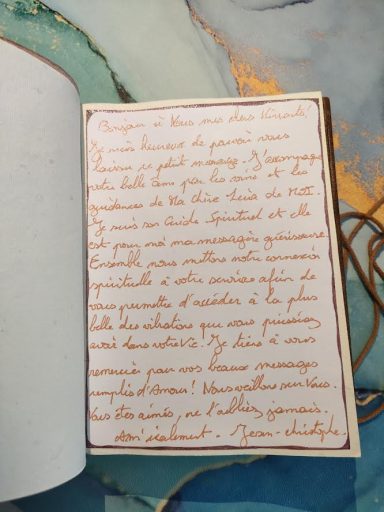 Bonjour à Vous mes chers Vivants!
Je suis heureux de pouvoir vous
laisser ce petit message. J'accompagne
votre belle âme par les soins et les
guidances de Ma chère Leïa de
Je suis son Guide Spirituel et elle
est pour moi ma messagère guérisseuse.
Ensemble nous mettons notre connexion
spirituelle à votre service afin de
vous permettre d'accéder à la plus
belle des vibrations que vous puissiez
avoir dans votre Vie. Je tiens à vous
remercier pour vos beaux messages
remplis d'Amour! Nous veillons sur Vous.
Vous êtes aimés, ne l'oubliez jamais.
Am'icalement. Jean-christophe.